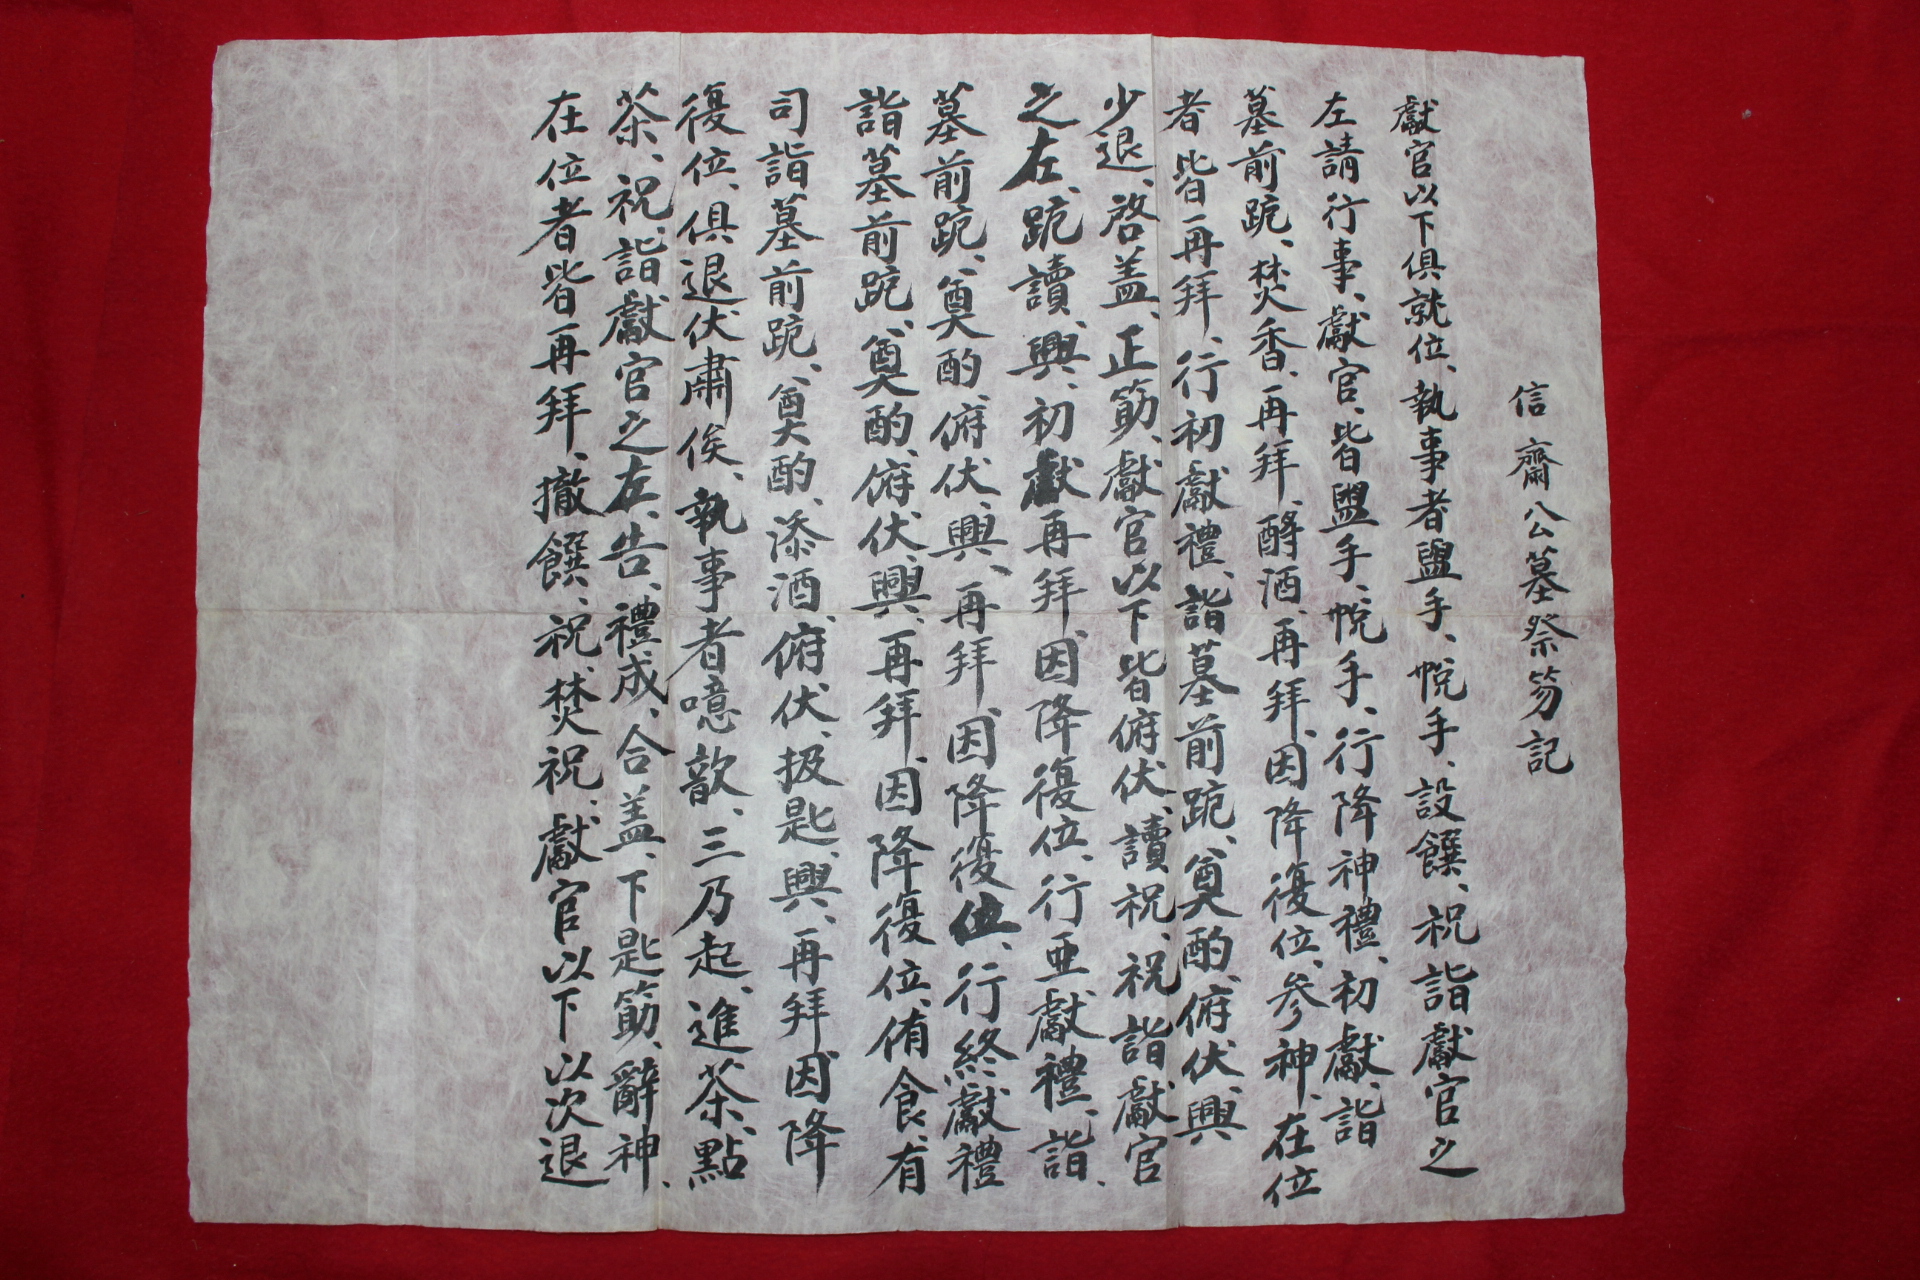 信齋公墓祭笏記
獻官以下俱就位、執事者盥手、帨手、設饌、祝詣獻官之
左請行事、獻官、皆盥手、帨手、行降神禮、初獻、詣
墓前跪、焚香、再拜、酹酒、再拜、因降復位、參神、在位
者皆再拜、行初獻禮、詣墓前跪、奠酌、俯伏、興
少退、啓盖、正筯、獻官以下皆俯伏、讀祝、祝詣獻官
之左、跪讀、興、初獻再拜、因降復位、行亜獻禮、詣、
墓前跪、奠酌、俯伏、興、再拜、因降復位、行終獻禮
詣墓前跪、奠酌、俯伏、興、再拜、因降復位、侑食、有
司詣墓前跪、奠酌、添酒、俯伏、扱匙、興、再拜因降
復位、俱退伏肅俟、執事者噫歆、三乃起、進茶、點
茶、祝、詣獻官之左、告、禮成、合盖、下匙筯、辭神、
在位者皆再拜、撤饌、祝、焚祝、獻官以下以次退